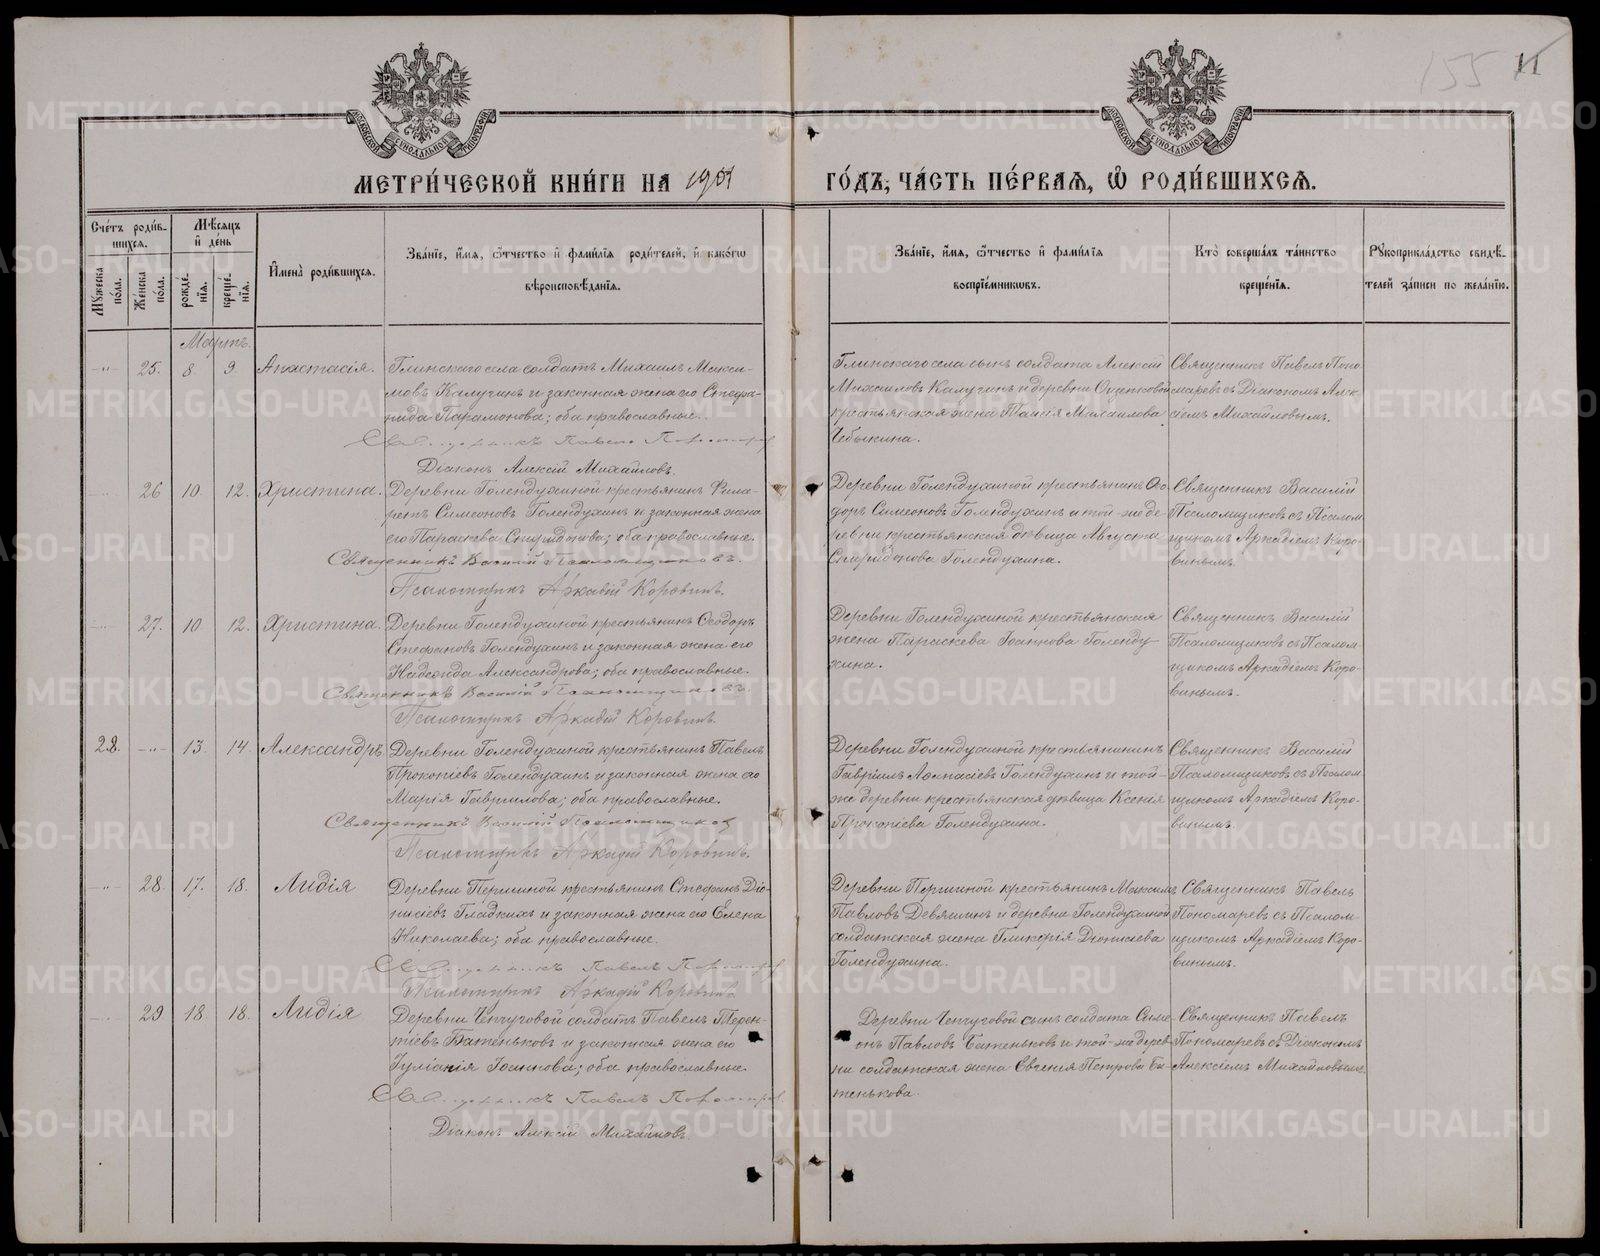 155 11
МОСКОВСКОЙ СѴНОДАЛЬНОЙ ТИПОГРАФІИ
МОСКОВСКОЙ СѴНОДАЛЬНОЙ ТИПОГРАФІИ
МЕТРИ́ЧЕСКОЙ КНИ́ГИ НА 1901
ГО́ДЪ, ЧА́СТЬ ПЕ́РВАѦ, Ѽ РОДИ́ВШИХСѦ.
Сче́тъ роди́в-
шихся.
Мѣ́сяцъ
и̂ де́нь
Мꙋ́жеска по́ла.
Же́нска по́ла.
рожде́-нїѧ.
креще́-нїѧ.
И̂мена̀ роди́вшихсѧ.
Зва́нїе, и́мѧ, ѻ́тчество и̂ фами́лїѧ роди́телей, и̂ како́гѡ
вѣроисповѣ́данїѧ.
Зва́нїе, и́мѧ, ѻ́тчество и̂ фами́лїѧ
воспрїе́мникѡвъ.
Кто̀ соверша́лъ та́инство
креще́нїѧ.
Рꙋкоприкла́дство свидѣ́-
телей за́писи по жела́нїю.
Мартъ.
-"- 25. 8. 9. Анастасія.
Глинскаго села солдатъ Михаилъ Макси-
мовъ Калугинъ и законная жена его Стефа-
нида Парамонова; оба православные.
Священникъ Павелъ Пономаревъ
Діаконъ Алексій Михайловъ.
Глинскаго села сынъ солдата Алексій
Михаиловъ Калугинъ и деревни
крестьянская жена Таисія
Чебыкина.
Священникъ Павелъ Поно-
маревъ съ Діакономъ Алек-
сіемъ Михайловымъ.
26 10. 12. Христина.
Деревни Голендухиной крестьянинъ Фила-
ретъ Симеоновъ Голендухинъ и законная жена
его Параскева Спиридонова; оба православные.
Священникъ Василій Псаломщиковъ.
Псаломщикъ Аркадій Коровинъ.
Деревни Голендухиной крестьянинъ Ѳео-
доръ Симеоновъ Голендухинъ и той-же де-
ревни крестьянская дѣвица Августа
Спиридонова Голендухина.
Священникъ Василій
Псаломщиковъ съ Псалом-
щикомъ Аркадіемъ Коро-
винымъ.
27. 10 12. Христина.
Деревни Голендухиной крестьянинъ Ѳеодоръ
Стефановъ Голендухинъ и законная жена его
Надежда Александрова; оба православные.
Священникъ Василій Псаломщиковъ.
Псаломщикъ Аркадій Коровинъ
Деревни Голендухиной крестьянская
жена Параскева Іоаннова Голенду-
хина.
Священникъ Василій
Псаломщиковъ съ Псалом-
щикомъ Аркадіемъ Коро-
винымъ.
28. -"- 13. 14. Александръ
Деревни Голендухиной крестьянинъ Павелъ
Прокопіевъ Голендухинъ и законная жена его
Марія Гавриилова; оба православные.
Священникъ Василій Псаломщиковъ
Псаломщикъ Аркадій Коровинъ.
Деревни Голендухиной крестьянинъ
Гавріилъ Аѳанасіевъ Голендухинъ и той-
же деревни крестьянская дѣвица Ксенія
Прокопіева Голендухина.
Священникъ Василій
Псаломщиковъ съ Псалом-
щикомъ Аркадіемъ Коро-
винымъ.
-"- 28. 17. 18. Лидія
Деревни Першиной крестьянинъ Стефанъ Діо-
нисіевъ Гладкихъ и законная жена его Елена
Николаева; оба православные.
Священникъ Павелъ Пономаревъ
Псаломщикъ Аркадій Коровинъ
Деревни Першиной крестьянинъ Максимъ
Павловъ Девяшинъ и деревни Голендухиной
солдатская жена Гликерія Діонисіева
Голендухина.
Священникъ Павелъ
Пономаревъ съ Псалом-
щикомъ Аркадіемъ Коро-
винымъ.
29 18 18. Лидія
Деревни Ченчуговой солдатъ Павелъ Терен-
тіевъ Батеньковъ и законная жена его
Іуліанія Іоаннова; оба православные.
Священникъ Павелъ Пономаревъ
Діаконъ Алексій Михайловъ.
Деревни Ченчуговой сынъ солдата Симе-
онъ Павловъ Батеньковъ и той-же дерев-
ни солдатская жена Евгенія Петрова Ба-
тенькова.
Священникъ Павелъ
Пономаревъ съ Діакономъ
Алексіемъ Михайловымъ.
METRIKI.GASO-URAL.RU